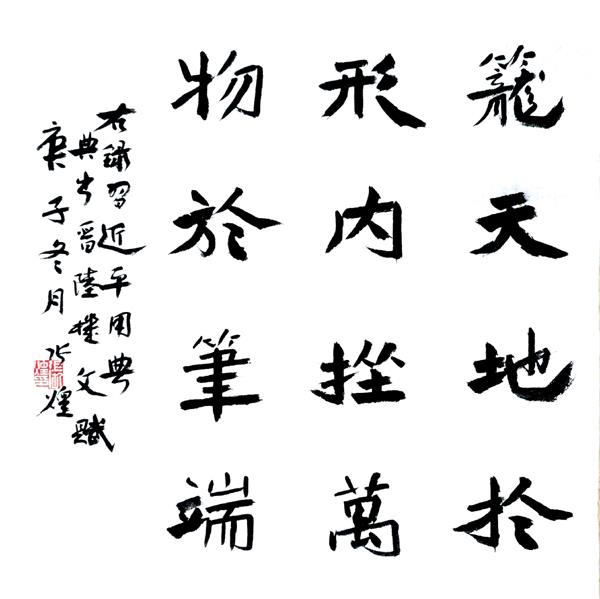 籠天地扵
形内挫萬
物於筆端
右録習近平用典
典出晉陸機文賦
庚子冬月煌